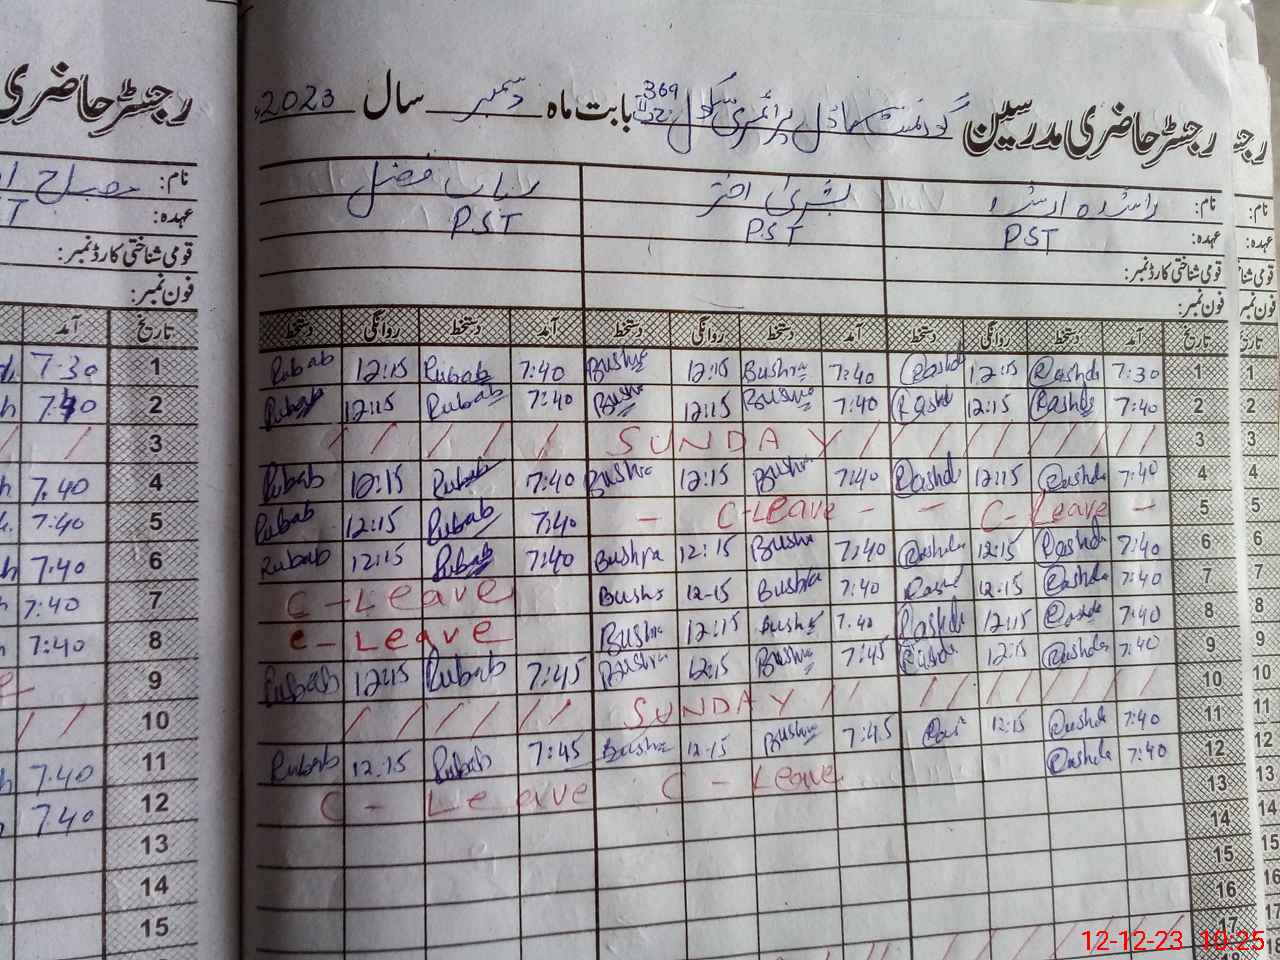 رجسٹر حاضری مدرسین گورنمنٹ ماڈل پرائمری سکول 369 بابت ماہ دسمبر سال 2023ء
نام: راشدہ ارشد بشریٰ اختر رباب فضل
عہدہ: PST PST PST
قومی شناختی کارڈ نمبر:
فون نمبر:
تاریخ آمد دستخط روانگی دستخط آمد دستخط روانگی دستخط آمد دستخط روانگی دستخط
1 7:30 Rashda 12:15 Rashd 7:40 Bushra 12:15 Bushra 7:40 Rubab 12:15 Rubab
2 7:40 Rashda 12:15 Rashd 7:40 Bushra 12:15 Bushra 7:40 Rubab 12:15 Rubab
3 / / / / / / / SUNDAY / / / / /
4 7:40 Rashda 12:15 Rashda 7:40 Bushra 12:15 Bushra 7:40 Rubab 12:15 Rubab
5 - C-Leave - - C-Leave - 7:40 Rubab 12:15 Rubab
6 7:40 Rashda 12:15 Rashda 7:40 Bushra 12:15 Bushra 7:40 Rubab 12:15 Rubab
7 7:40 Rashda 12:15 7:40 Bushra 12:15 Bushra C-Leave
8 7:40 12:15 Rashda 7:40 Bushra 12:15 Bushra C-Leave
9 7:40 Rashda 12:15 Rashda 7:45 Bushra 12:15 Bushra 7:45 Rubab 12:15 Rubab
10 / / / / / / SUNDAY / / / / / /
11 7:40 Rashda 12:15 7:45 Bushra 12:15 Bushra 7:45 Rubab 12:15 Rubab
12 7:40 Rashda C-Leave C-Leave
13
14
15
16
17
رجسٹر حاضری
نام: مصباح
عہدہ:
قومی شناختی کارڈ نمبر:
فون نمبر:
تاریخ آمد
1 7:30
2 7:40
3 / /
4 7:40
5 7:40
6 7:40
7 7:40
8 7:40
9
10 / /
11 7:40
12 7:40
13
14
15
12-12-23 10:25